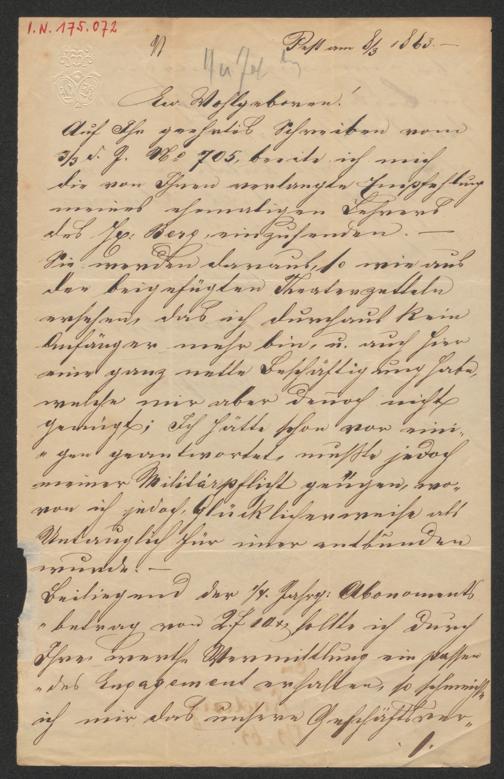 I.N. 175.072
Pest am 8/3 1863. –
Euer Wohlgeboren!
Auf Ihr geehrtes Schreiben vom
3/3 d. J. No 705, beeile ich mich
die von Ihnen verlangte Empfehlung
meines ehemaligen Lehrers
des H: Berg, einzusenden. –
Sie werden daraus, so wie aus
den beigefügten Theaterzetteln
ersehen, das ich durchaus kein
Anfänger mehr bin, u. auch hier
eine ganz nette Beschäftigung habe,
welche mir aber dennoch nicht
genügt; Ich hätte schon vor eini-
gen geantwortet, mußte jedoch
meiner Militärpflicht genügen, wo-
von ich jedoch Glücklicherweise als
Untauglich für imer entbunden
wurde. –
Beiliegend der 1/4 Jahrg: Abonoments
betrag von 2 f 10 x, sollte ich durch
Ihre werthe Vermittlung ein passen
des Engagement erhalten, so schmeichle
ich mir das unsere Geschäftsver-